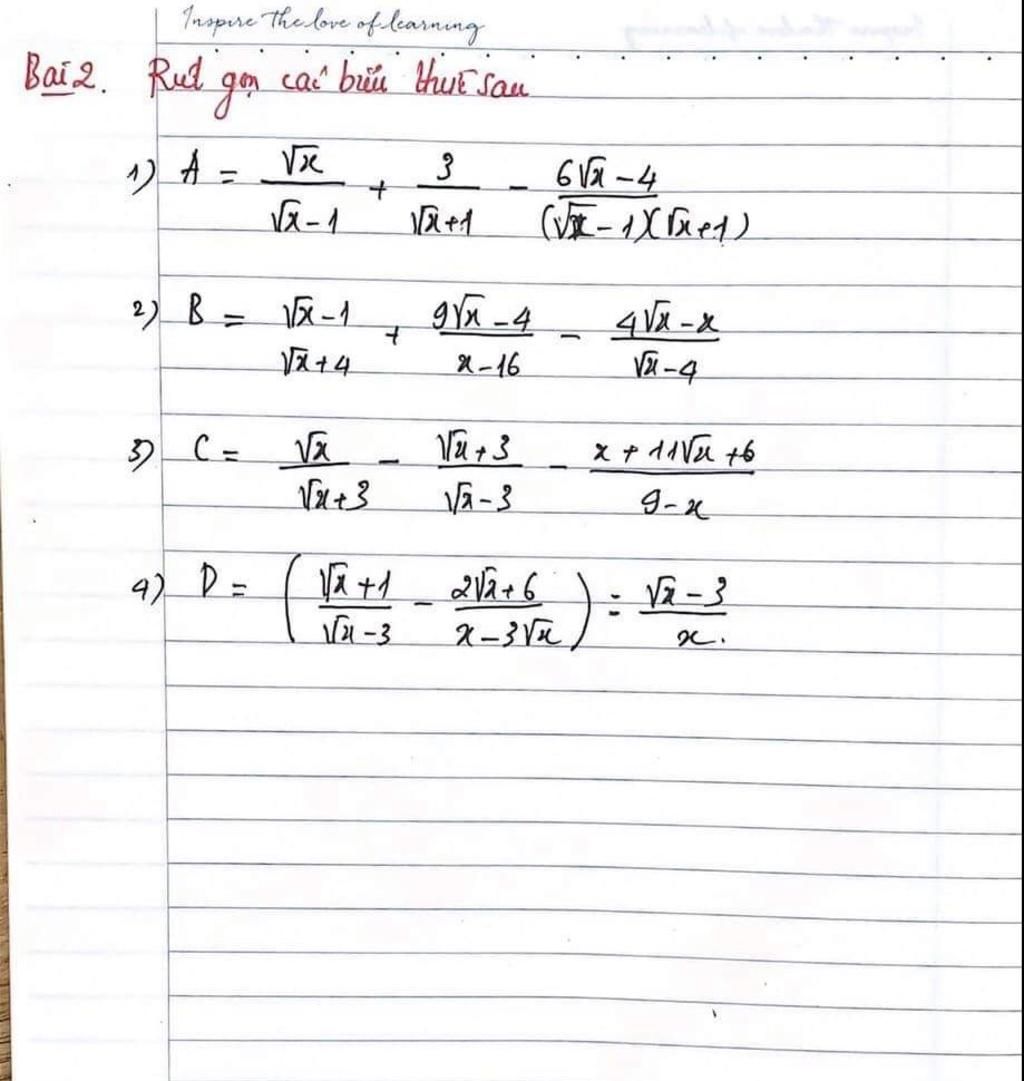 Inspire the love of learning
Bài 2. Rút gọn các biểu thức sau
1) A = √x / (√x - 1) + 3 / (√x + 1) - (6√x - 4) / ((√x - 1)(√x + 1))
2) B = (√x - 1) / (√x + 4) + (9√x - 4) / (x - 16) - (4√x - x) / (√x - 4)
3) C = √x / (√x + 3) - (√x + 3) / (√x - 3) - (x + 11√x + 6) / (9 - x)
4) D = ((√x + 1) / (√x - 3) - (2√x + 6) / (x - 3√x)) : (√x - 3) / x.